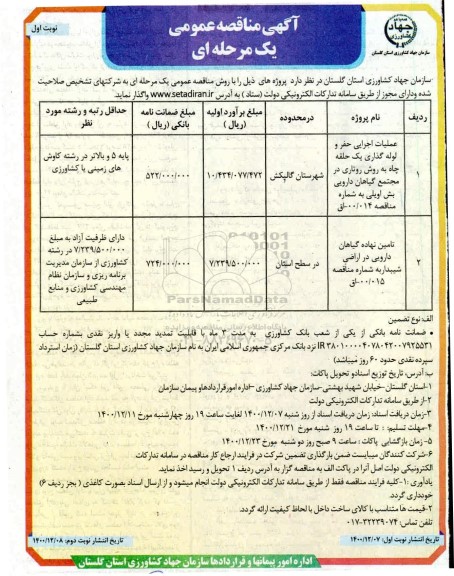 آگهی مناقصه عمومی
یک مرحله ای
نوبت اول
جهاد
کشاورزی
سازمان جهاد کشاورزی استان گلستان
-سازمان جهاد کشاورزی استان گلستان در نظر دارد پروژه های ذیل را با روش مناقصه عمومی یک مرحله ای به شرکتهای تشخیص صلاحیت
شده ودارای مجوز از طریق سامانه تدارکات الکترونیکی دولت (ستاد) به آدرس www.setadiran.ir واگذار نماید.
ردیف
نام پروژه
درمحدوده
مبلغ برآورد اولیه
(ریال)
مبلغ ضمانت نامه
بانکی (ریال)
حداقل رتبه و رشته مورد
نظر
۱
عملیات اجرایی حفر و
لوله گذاری یک حلقه
چاه به روش روتاری در
مجتمع گیاهان دارویی
بش اویلی به شماره
مناقصه ۰۰/۰۱۴-الق
شهرستان گالیکش
۱۰/۴۳۴/۰۷۷/۴۷۲
۵۲۲/۰۰۰/۰۰۰
پایه ۵ و بالاتر در رشته کاوش
های زمینی یا کشاورزی
۲
تامین نهاده گیاهان
دارویی در اراضی
شیبدار به شماره مناقصه
۰۰/۰۱۵-الق
در سطح استان
۷/۲۳۹/۵۰۰/۰۰۰
۷۲۴/۰۰۰/۰۰۰
دارای ظرفیت آزاد به مبلغ
۷/۲۳۹/۵۰۰/۰۰۰ در رشته
کشاورزی از سازمان مدیریت
برنامه ریزی و سازمان نظام
مهندسی کشاورزی و منابع
طبیعی
ParsNamadData
الف: نوع تضمین
• ضمانت نامه بانکی از یکی از شعب بانک کشاورزی به مدت ۳ ماه با قابلیت تمدید مجدد یا واریز نقدی بشماره حساب
IR۳۸۰۱۰۰۰۰۴۰۷۸۰۴۲۰۰۷۹۲۵۵۳۱ نزد بانک مرکزی جمهوری اسلامی ایران به نام سازمان جهاد کشاورزی استان گلستان (زمان استرداد
سپرده نقدی حدود ۶۰ روز میباشد)
ب: آدرس، تاریخ توزیع اسنادو تحویل پاکات:
۱-استان گلستان-خیابان شهید بهشتی-سازمان جهاد کشاورزی-اداره امور قراردادهاو پیمان سازمان
۲-از طریق سامانه تدارکات الکترونیکی دولت
۳-زمان دریافت اسناد: زمان دریافت اسناد از روز شنبه ۱۴۰۰/۱۲/۰۷ لغایت ساعت ۱۹ روز چهارشنبه مورخ ۱۴۰۰/۱۲/۱۱
۴-مهلت تسلیم: تا ساعت ۱۹ روز شنبه مورخ ۱۴۰۰/۱۲/۲۱
۵-زمان بازگشایی پاکات: ساعت ۹ صبح روز دو شنبه مورخ ۱۴۰۰/۱۲/۲۳
۶-شرکت کنندگان میبایست ضمن بارگذاری تضمین شرکت در فرایند ارجاع کار مناقصه در سامانه تدارکات
الکترونیکی دولت اصل آنرا در پاکت الف به مناقصه گزار به آدرس ردیف ۱ تحویل و رسید اخذ نماید.
یادآوری: ۱-کلیه فرایند مناقصه فقط از طریق سامانه تدارکات الکترونیکی دولت انجام میشود و از ارسال اسناد بصورت کاغذی (بجز ردیف ۶)
خودداری گردد.
۲-قیمت ها متناسب با کالای ساخت داخل با لحاظ کیفیت ارائه گردد.
تلفن تماس: ۳۲۲۳۹۰۷۴-۰۱۷
تاریخ انتشار نوبت اول: ۱۴۰۰/۱۲/۰۷
تاریخ انتشار نوبت دوم: ۱۴۰۰/۱۲/۰۸
اداره امور پیمانها و قراردادها سازمان جهاد کشاورزی استان گلستان